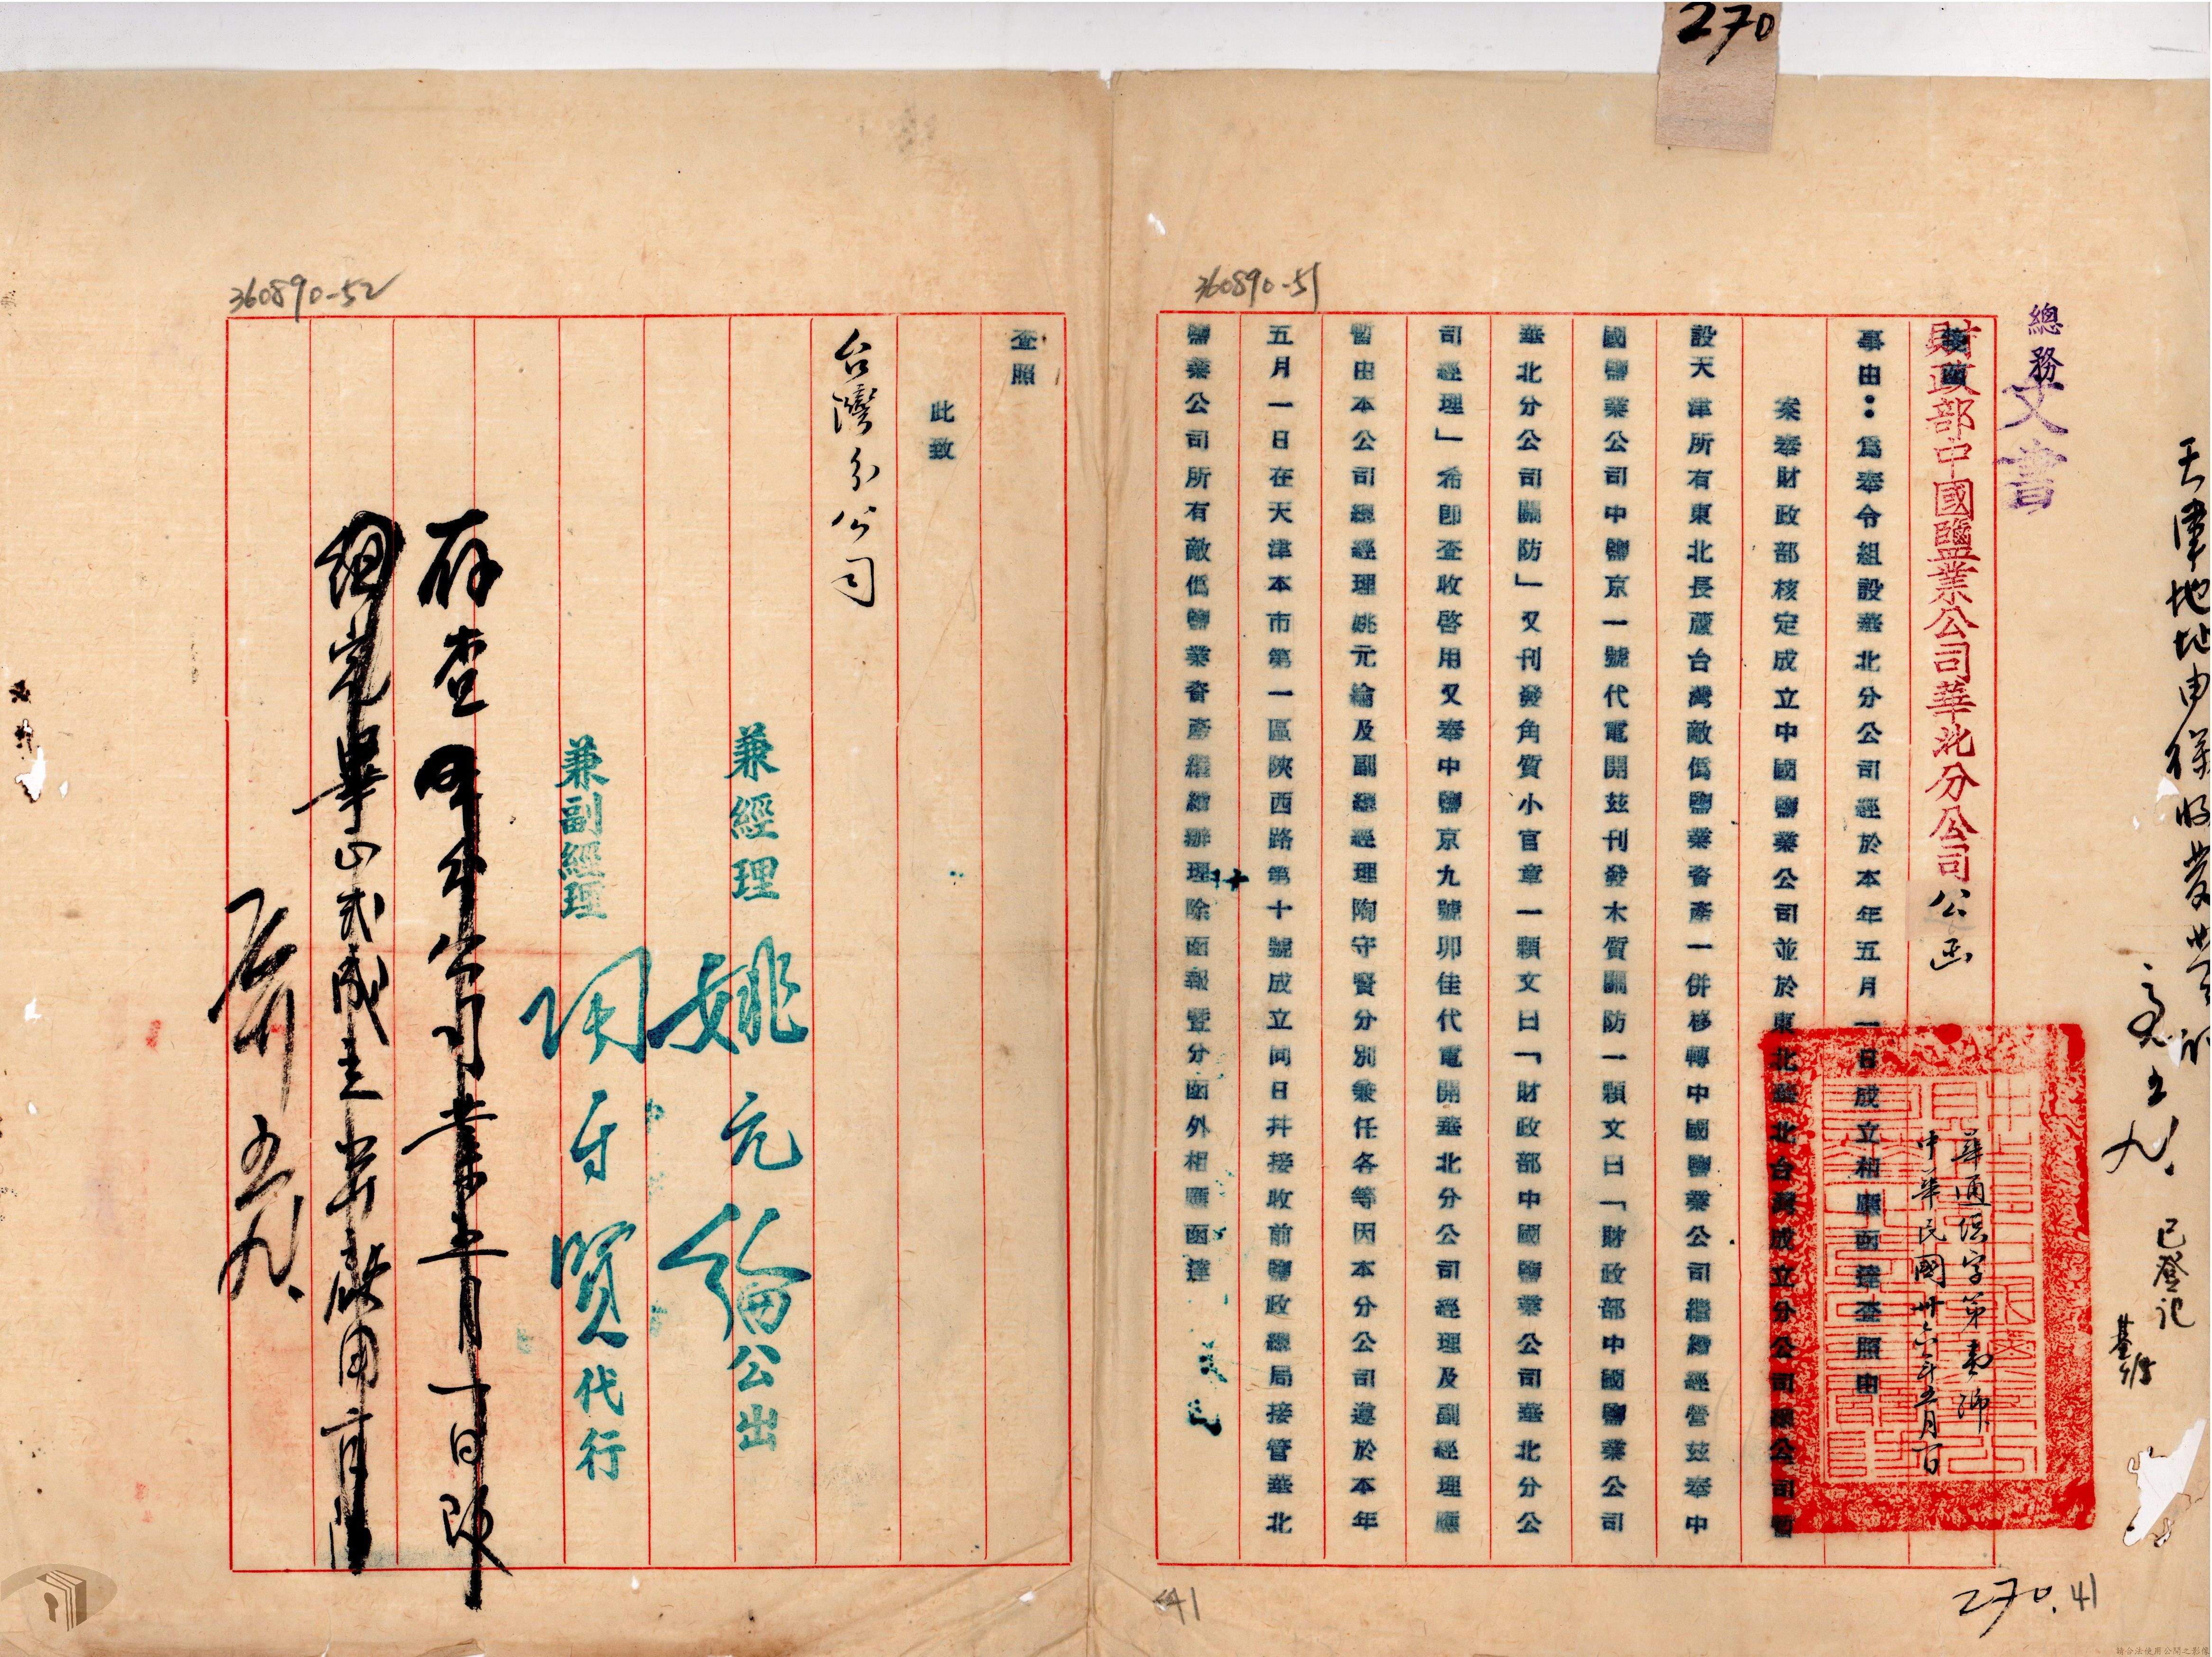 270
360890-51
總務
文書
天津地址由祥收發登記
五九
已登記
5/8
財政部中國鹽業公司華北分公司公函
華通總字第壹號
中華民國卅六年五月一日
事由：為奉令組設華北分公司經於本年五月一日成立相應函達查照由
案奉財政部核定成立中國鹽業公司並於東北華北台灣成立分公司總公司暫
設天津所有東北長蘆台灣敵偽鹽業資產一併移轉中國鹽業公司繼續經營茲奉中
國鹽業公司中鹽京一號代電開茲刊發木質關防一顆文曰「財政部中國鹽業公司
華北分公司關防」又刊發角質小官章一顆文曰「財政部中國鹽業公司華北分公
司經理」希即查收啓用又奉中鹽京九號卯佳代電開華北分公司經理及副經理應
暫由本公司總經理姚元綸及副總經理陶守賢分別兼任各等因本分公司遵於本年
五月一日在天津本市第一區陝西路第十號成立同日幷接收前鹽政總局接管華北
鹽業公司所有敵偽鹽業資產繼續辦理除函報暨分函外相應函達
270.41
41
360890-52
查照
此致
台灣分公司
兼經理 姚元綸公出
兼副經理 陶守賢代行
存查
分公司業五月一日
組完畢正式成立並啟用
五九